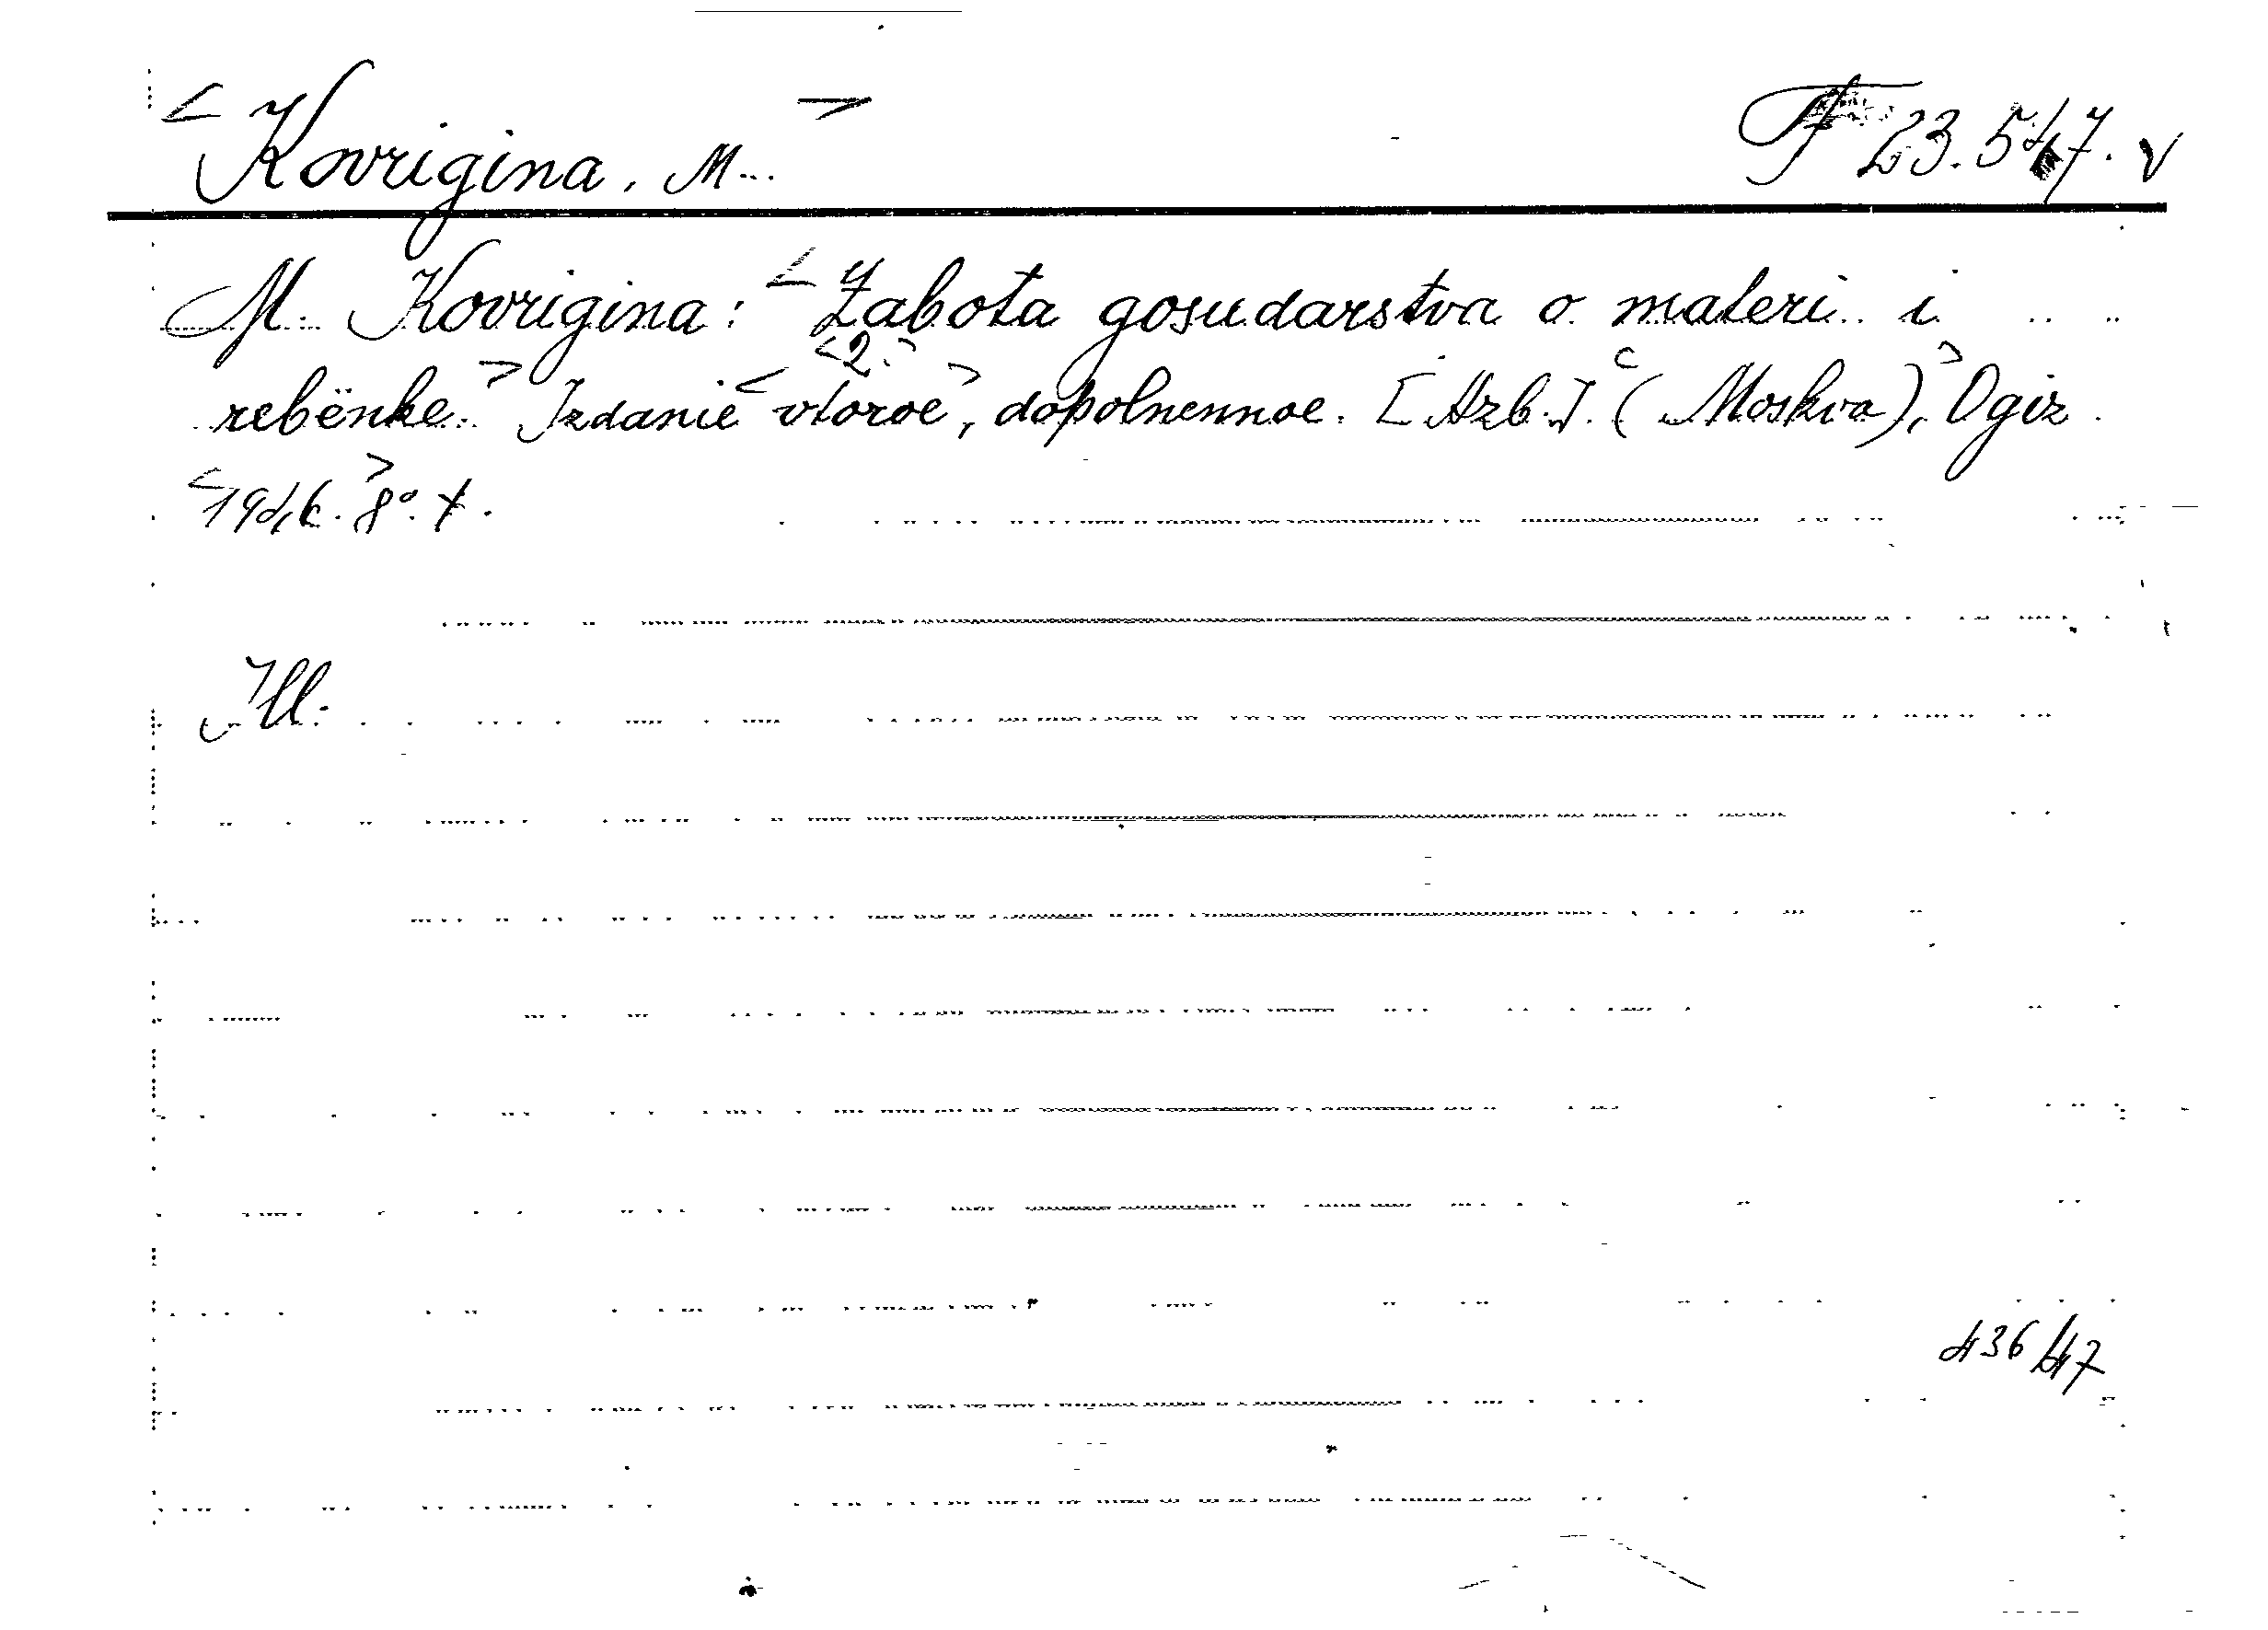 < Kovrigina, M... > F 23.547. v
M. Kovrigina: < Zabota gosudarstva o materi i
<2.>
rebënke. > Izdanie < vtoroe >, dopolnennoe. [Azb.]. < (Moskva), > Ogiz
< 1946. > 8°. †.
Ill.
436/47